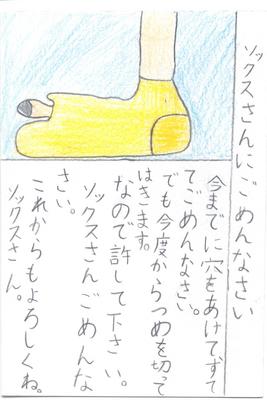 ソックスさんにごめんなさい
今までに穴をあけてすて
てごめんなさい。
でも今度からつめを切って
はきます。
なので許して下さい。
ソックスさんごめんな
さい。
これからもよろしくね。
ソックスさん。